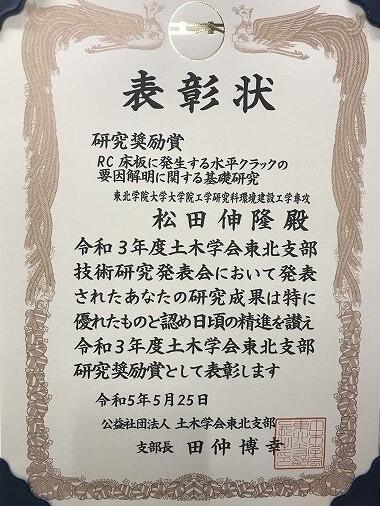 表彰状
研究奨励賞
RC床板に発生する水平クラックの
要因解明に関する基礎研究
東北学院大学大学院工学研究科環境建設工学専攻
松田伸隆殿
令和3年度土木学会東北支部
技術研究発表会において発表
されたあなたの研究成果は特に
優れたものと認め日頃の精進を讃え
令和3年度土木学会東北支部
研究奨励賞として表彰します
令和5年5月25日
公益社団法人 土木学会東北支部
支部長 田仲博幸